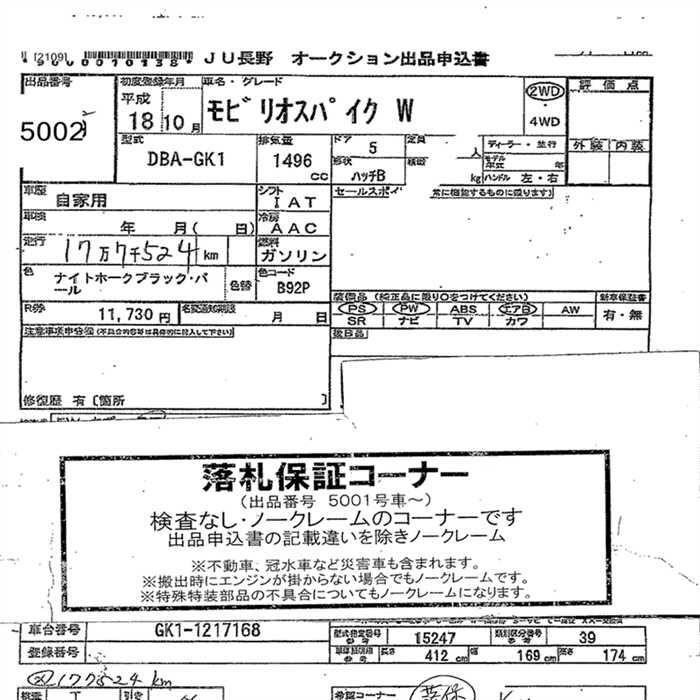 [2109] *9000010138* JU長野 オークション出品申込書
出品番号 初度登録年月 車名・グレード 2WD 評価点
5002 平成 18 10月 モビリオスパイク W ・ 4WD
型式 排気量 ドア 5 定員 人 ディーラー・並行 外装 内装
DBA-GK1 1496 cc 形状 ハッチB 積載 kg モデル年式 年
ハンドル 左・右
車歴 自家用 シフト IAT セールスポイ 常に確認するものに限ります)
車検 年 月( 日) 冷房 AAC
走行 17万7千524km 燃料 ガソリン
色 ナイトホークブラック・パール 色替 色コード B92P
装備品 (純正品に限り○をつけてください) 新車保証書
R券 11,730円 名変通知期限 月 日 PS PW ABS エアB AW 有・無
SR ナビ TV カワ
注意事項申分欄(不具合内容等は具体的に記入して下さい) 後日品
修復歴 有 [箇所 ]
落札保証コーナー
(出品番号 5001号車～)
検査なし・ノークレームのコーナーです
出品申込書の記載違いを除きノークレーム
※不動車、冠水車など災害車も含まれます。
※搬出時にエンジンが掛からない場合でもノークレームです。
※特殊特装部品の不具合についてもノークレームになります。
車台番号 GK1-1217168 型式指定番号 参考 15247 類別区分番号 参考 39
登録番号 参考 長さ 412 cm 幅 169 cm 高さ 174 cm
177524km
希望コーナー